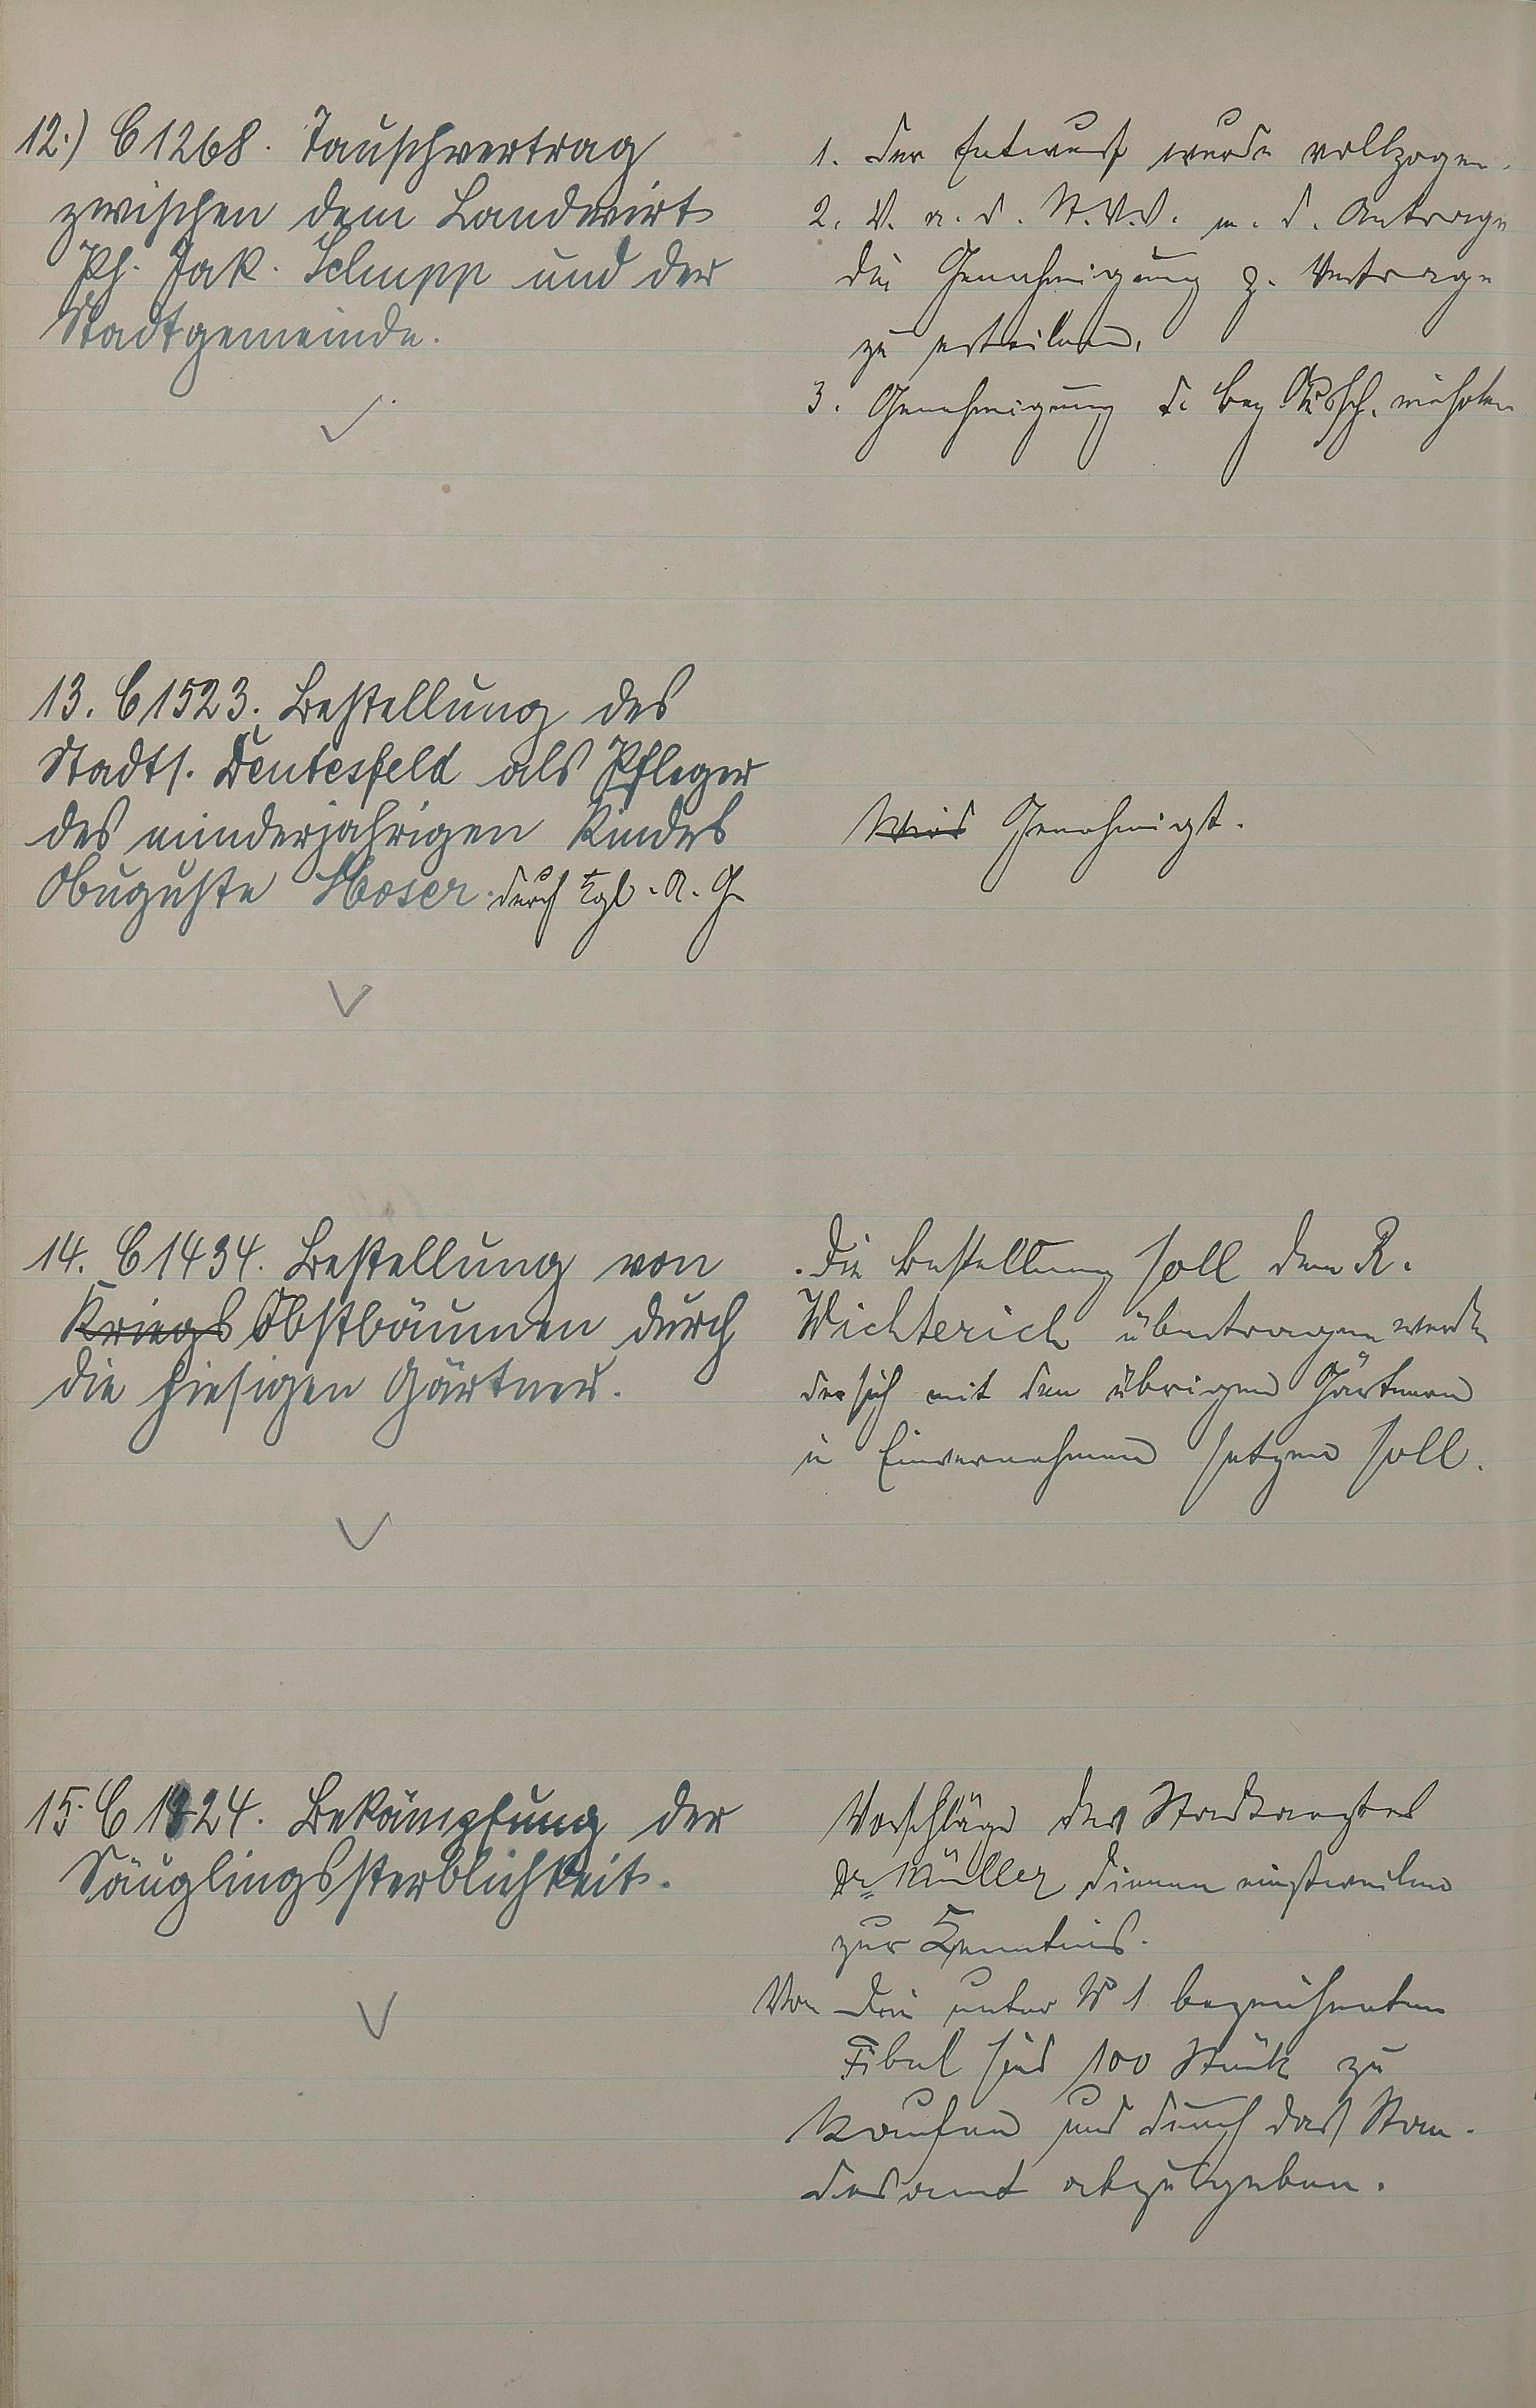 12.) C 1268. Tauschvertrag
zwischen dem Landwirt
Ph. Jak. Schnepp und der
Stadtgemeinde.
1. Der Entwurf wurde vollzogen.
2. V. a. d. St.V.V. m. d. Antrage
die Genehmigung z. Vertrage
zu erteilen,
3. Genehmigung d. Bez. Aussch. einholen
13. C 1523. Bestellung des
Stadts. Deutesfeld als Pfleger
des minderjahrigen Kindes
Auguste Moser. durch Kgl. A. G.
Wird Genehmigt.
14. C 1434. Bestellung von
Kriegs Obstbäumen durch
die hiesigen Gärtner.
Die Bestellung soll dem R.
Wichterich übertragen werden
der sich mit den übrigen Gärtnern
in Einvernehmen setzen soll.
15. C 1824. Bekämpfung der
Säuglingssterblichkeit.
Vorschläge des Stadtarztes
Dr. Müller dienen einstweilen
zur Kenntnis.
Von die unter No 1 bezeichneten
Fibel sind 100 Stück zu
kaufen und durch das Stan-
desamt abzugeben.